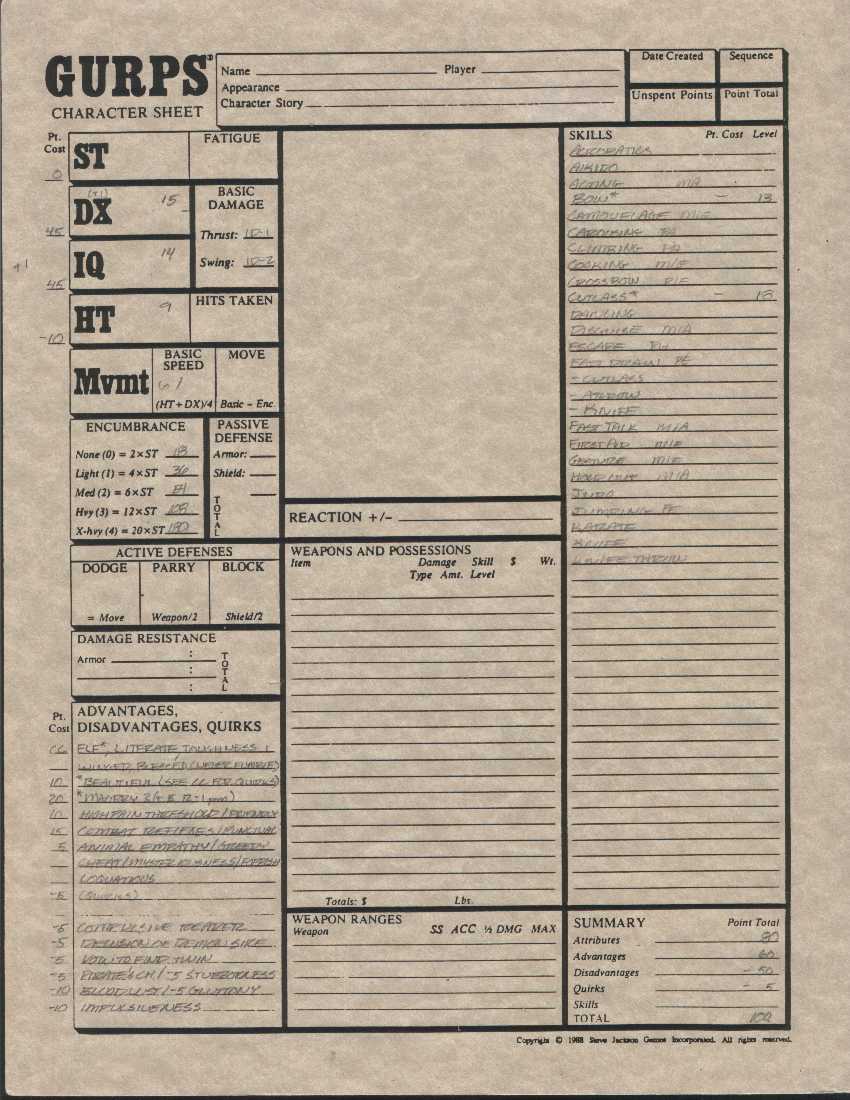 GURPS®
CHARACTER SHEET
Name
Player
Appearance
Character Story
Date Created
Sequence
Unspent Points
Point Total
Pt. Cost
ST
FATIGUE
0
DX (+1) 15
45
BASIC DAMAGE
Thrust: 1D-1
Swing: 1D-2
IQ 14
+1
45
HT 9
HITS TAKEN
-10
Mvmt
BASIC SPEED
6/
(HT+DX)/4
MOVE
Basic – Enc.
ENCUMBRANCE
None (0) = 2×ST 18
Light (1) = 4×ST 36
Med (2) = 6×ST 54
Hvy (3) = 12×ST 108
X-hvy (4) = 20×ST 180
PASSIVE DEFENSE
Armor:
Shield:
TOTAL
ACTIVE DEFENSES
DODGE PARRY BLOCK
= Move Weapon/2 Shield/2
DAMAGE RESISTANCE
Armor :
:
:
TOTAL
Pt. Cost
ADVANTAGES, DISADVANTAGES, QUIRKS
ELF*, LITERATE, TOUGHNESS 1
WINGED,
10 *BEAUTIFUL (SEE CC FOR QUIRKS)
20
10 HIGH PAIN THRESHOLD / FRIENDLY
15 COMBAT REFLEXES / PUNCTUAL
5 ANIMAL EMPATHY / GREEDY
CHEAT /
LOQUATIOUS
-5 (QUIRKS)
-5 COMPULSIVE
-5 DELUSION OF DEMON SIRE
-5 VOW TO FIND TWIN
-5 PIRATE'S CH / -5 STUBBORNESS
-10 BLOODLUST / -5 GLUTTONY
-10 IMPULSIVENESS
REACTION +/–
WEAPONS AND POSSESSIONS
Item Damage Skill $ Wt.
Type Amt. Level
Totals: $ Lbs.
WEAPON RANGES
Weapon SS ACC ½ DMG MAX
SKILLS Pt. Cost Level
ACROBATICS
AIKIDO
ACTING M/A
BOW* – 13
CAMOUFLAGE M/E
CAROUSING PA
CLIMBING PA
COOKING M/E
CROSSBOW P/E
CUTLASS* – 13
DANCING
DISGUISE M/A
ESCAPE PH
FAST DRAW PE
- CUTLASS
- ARROW
- KNIFE
FAST TALK M/A
FIRST AID M/E
GESTURE M/E
HOLD OUT M/A
JUDO
JUMPING PE
KARATE
KNIFE
KNIFE THROW
SUMMARY Point Total
Attributes 80
Advantages 60
Disadvantages - 50
Quirks - 5
Skills
TOTAL 100
Copyright © 1988 Steve Jackson Games Incorporated. All rights reserved.